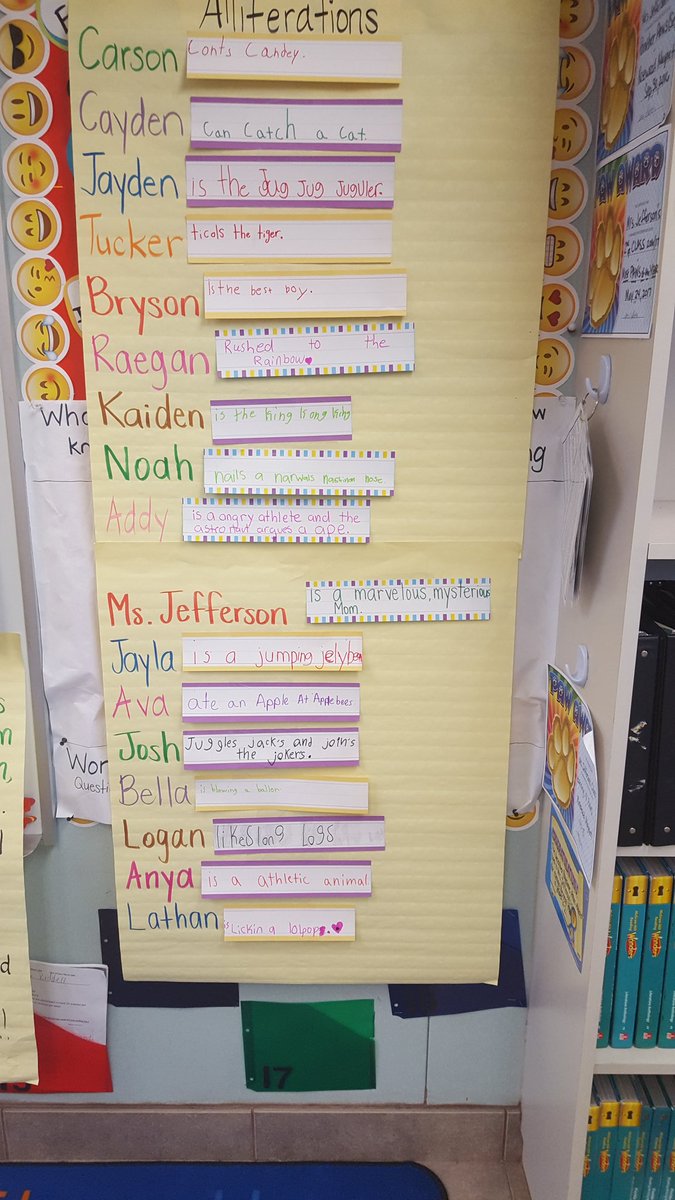 Alliterations
Carson Conts Candey.
Cayden Can Catch a Cat.
Jayden is the Jug Jug Juguler.
Tucker ticals the tiger.
Bryson Is the best boy.
Raegan Rushed to the
Rainbow
Kaiden is the King Kong King
Noah nails a narwals nose.
Addy is a angry athlete and the
astronaut argues a ape.
Ms. Jefferson Is a marvelous, mysterious
Mom.
Jayla is a jumping jelybean
Ava ate an Apple At Applebees
Josh Juggles jack's and join's
the jokers.
Bella is blowing a ballon
Logan likes long Logs
Anya is a athletic animal.
Lathan is Lickin a lolpops.
17
PAW AWARD
Ms. Jefferson's
May 24, 2017